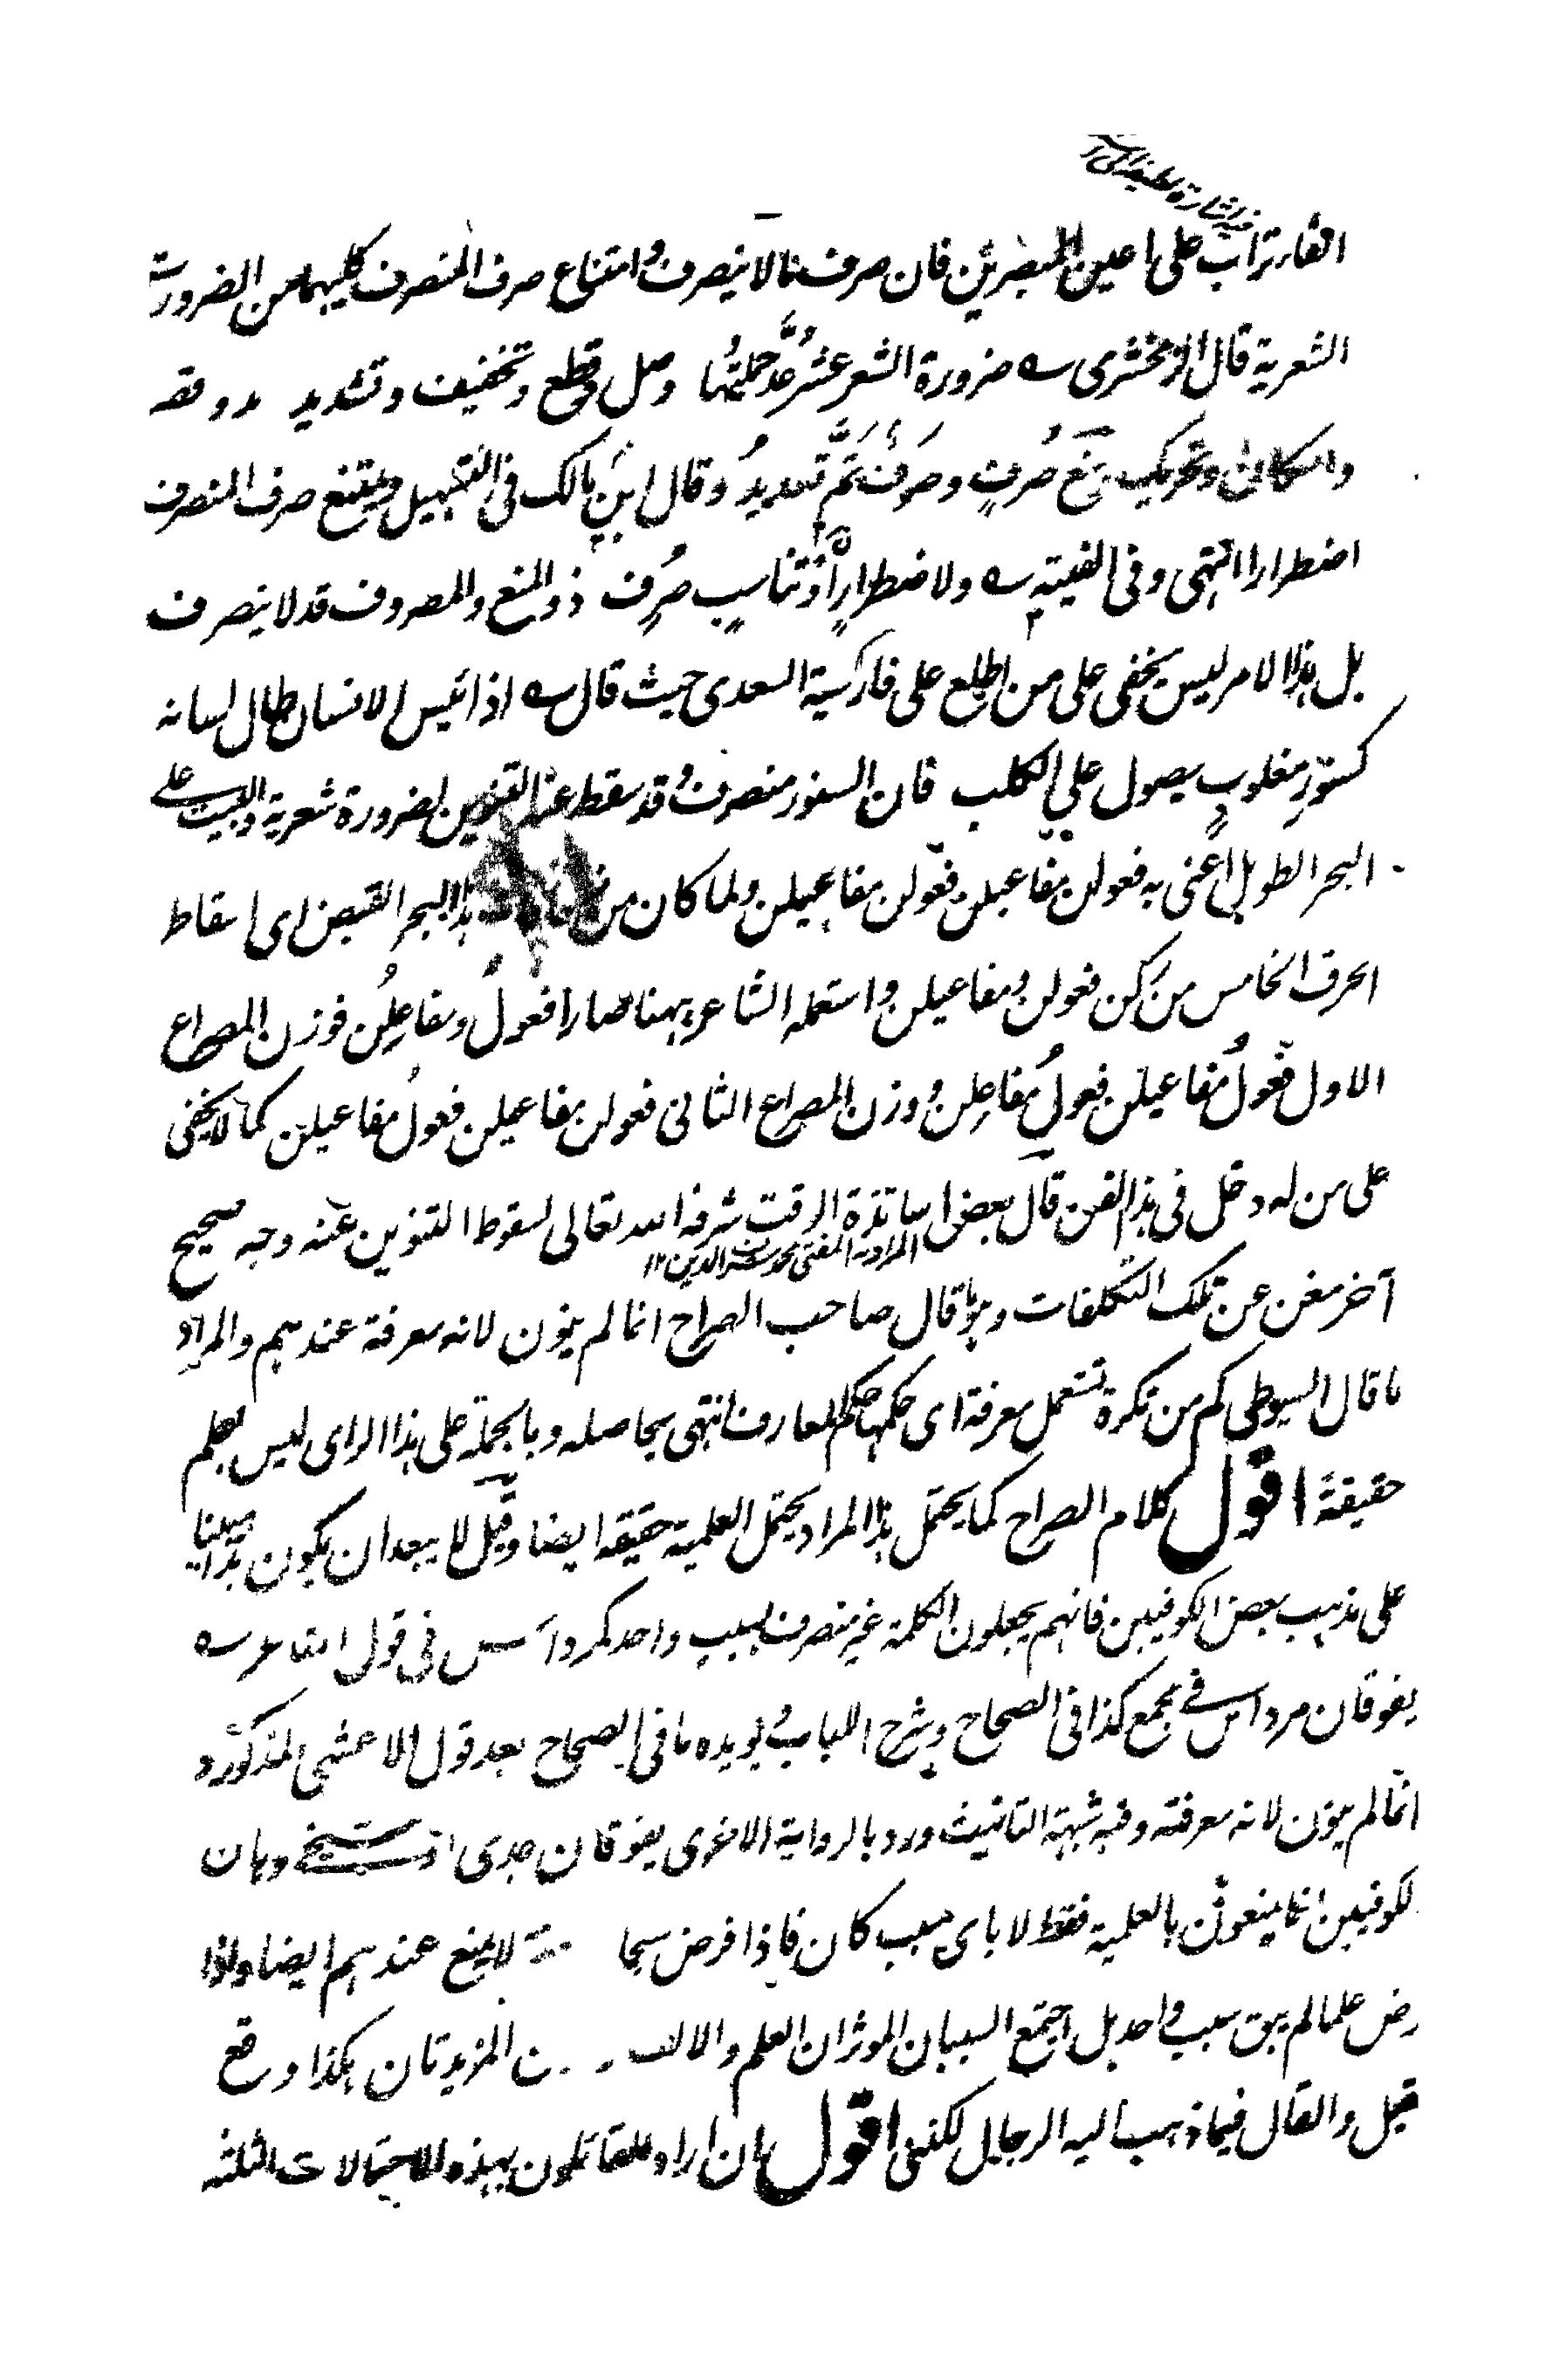 القاء تراب على اعين المبصرين فان صرف مالا ينصرف وامتناع صرف المنصرف كليهما من الضرورات
الشعرية قال الزمخشرى ؎ ضرورة الشعر عشر عُدَّ جملتُها وصل وقطع وتخفيف وتشديد مد وقصر
واسكان وتحريك ومنع صُرفٍ وصَرفٌ تَمَّ تعديدُ وقال ابن مالك فى التسهيل ويمتنع صرف المنصرف
اضطرارا انتهى وفى الفيته ؎ ولاضطرارٍ اَوْ تناسبٍ صُرِف ذو المنع والمصروف قد لا ينصرف
بل هذا الامر ليس يخفى على من اطلع على فارسية السعدى حيث قال ؎ اذا ئيس الانسان طال لسانه
كسنورِ مغلوبٍ يصول على الكلب فان السنور منصرف وقد سقط عنه التنوين لضرورة شعرية والبيت على
البحر الطويل اعنى به فعولن مفاعيلن فعولن مفاعيلن ولما كان من هذا البحر القبض اى اسقاط
الحرف الخامس من ركن فعولن ومفاعيلن واستعمله الشاعر ههنا صارا فعولُ ومفاعلن فوزن المصراع
الاول فعولُ مفاعيلن فعولُ مفاعلن ووزن المصراع الثانى فعولن مفاعيلن فعولُ مفاعيلن كما لا يخفى
على من له دخل فى هذا الفن قال بعض اساتذة الوقت شرفه الله تعالى لسقوط التنوين عنه وجه صحيح
المراد به المفتى محمد الدين ١٢
آخر مغن عن تلك التكلفات وهو ما قال صاحب الصراح انما لم ينون لانه معرفة عندهم والمراد
ما قال السيوطى كم من نكرة تستعمل معرفة اى حكمها حكم المعارف انتهى بحاصله وبالجملة على هذا الراى ليس بعلم
حقيقة اقول كلام الصراح كما يحتمل هذا المراد يحتمل العلمية حقيقة ايضا وقيل لا يبعد ان يكون هذا مبنيا
على مذهب بعض الكوفيين فانهم يجعلون الكلمة غير منصرف بسبب واحد كمرداس فى قول الشاعر ؎
يفوقان مرداس فى مجمع كذا فى الصحاح وشرح اللباب ويؤيده ما فى الصحاح بعد قول الاعشى المذكور و
انما لم ينون لانه معرفة وفيه شبهة التانيث ورد بالرواية الاخرى يفوقان جدى او شيخى وبان
لكوفيين انما يمنعون بالعلمية فقط لا باى سبب كان فاذا فرض لا يمنع عندهم ايضا واذا
رض علما لم يبق سبب واحد بل اجتمع السببان الموثران العلم والالف ن المزيدتان هكذا وقع
قيل والقال فيما ذهب اليه الرجال لكنى اقول ان اراد القائلون بهذه الاحتمالات الثلثة